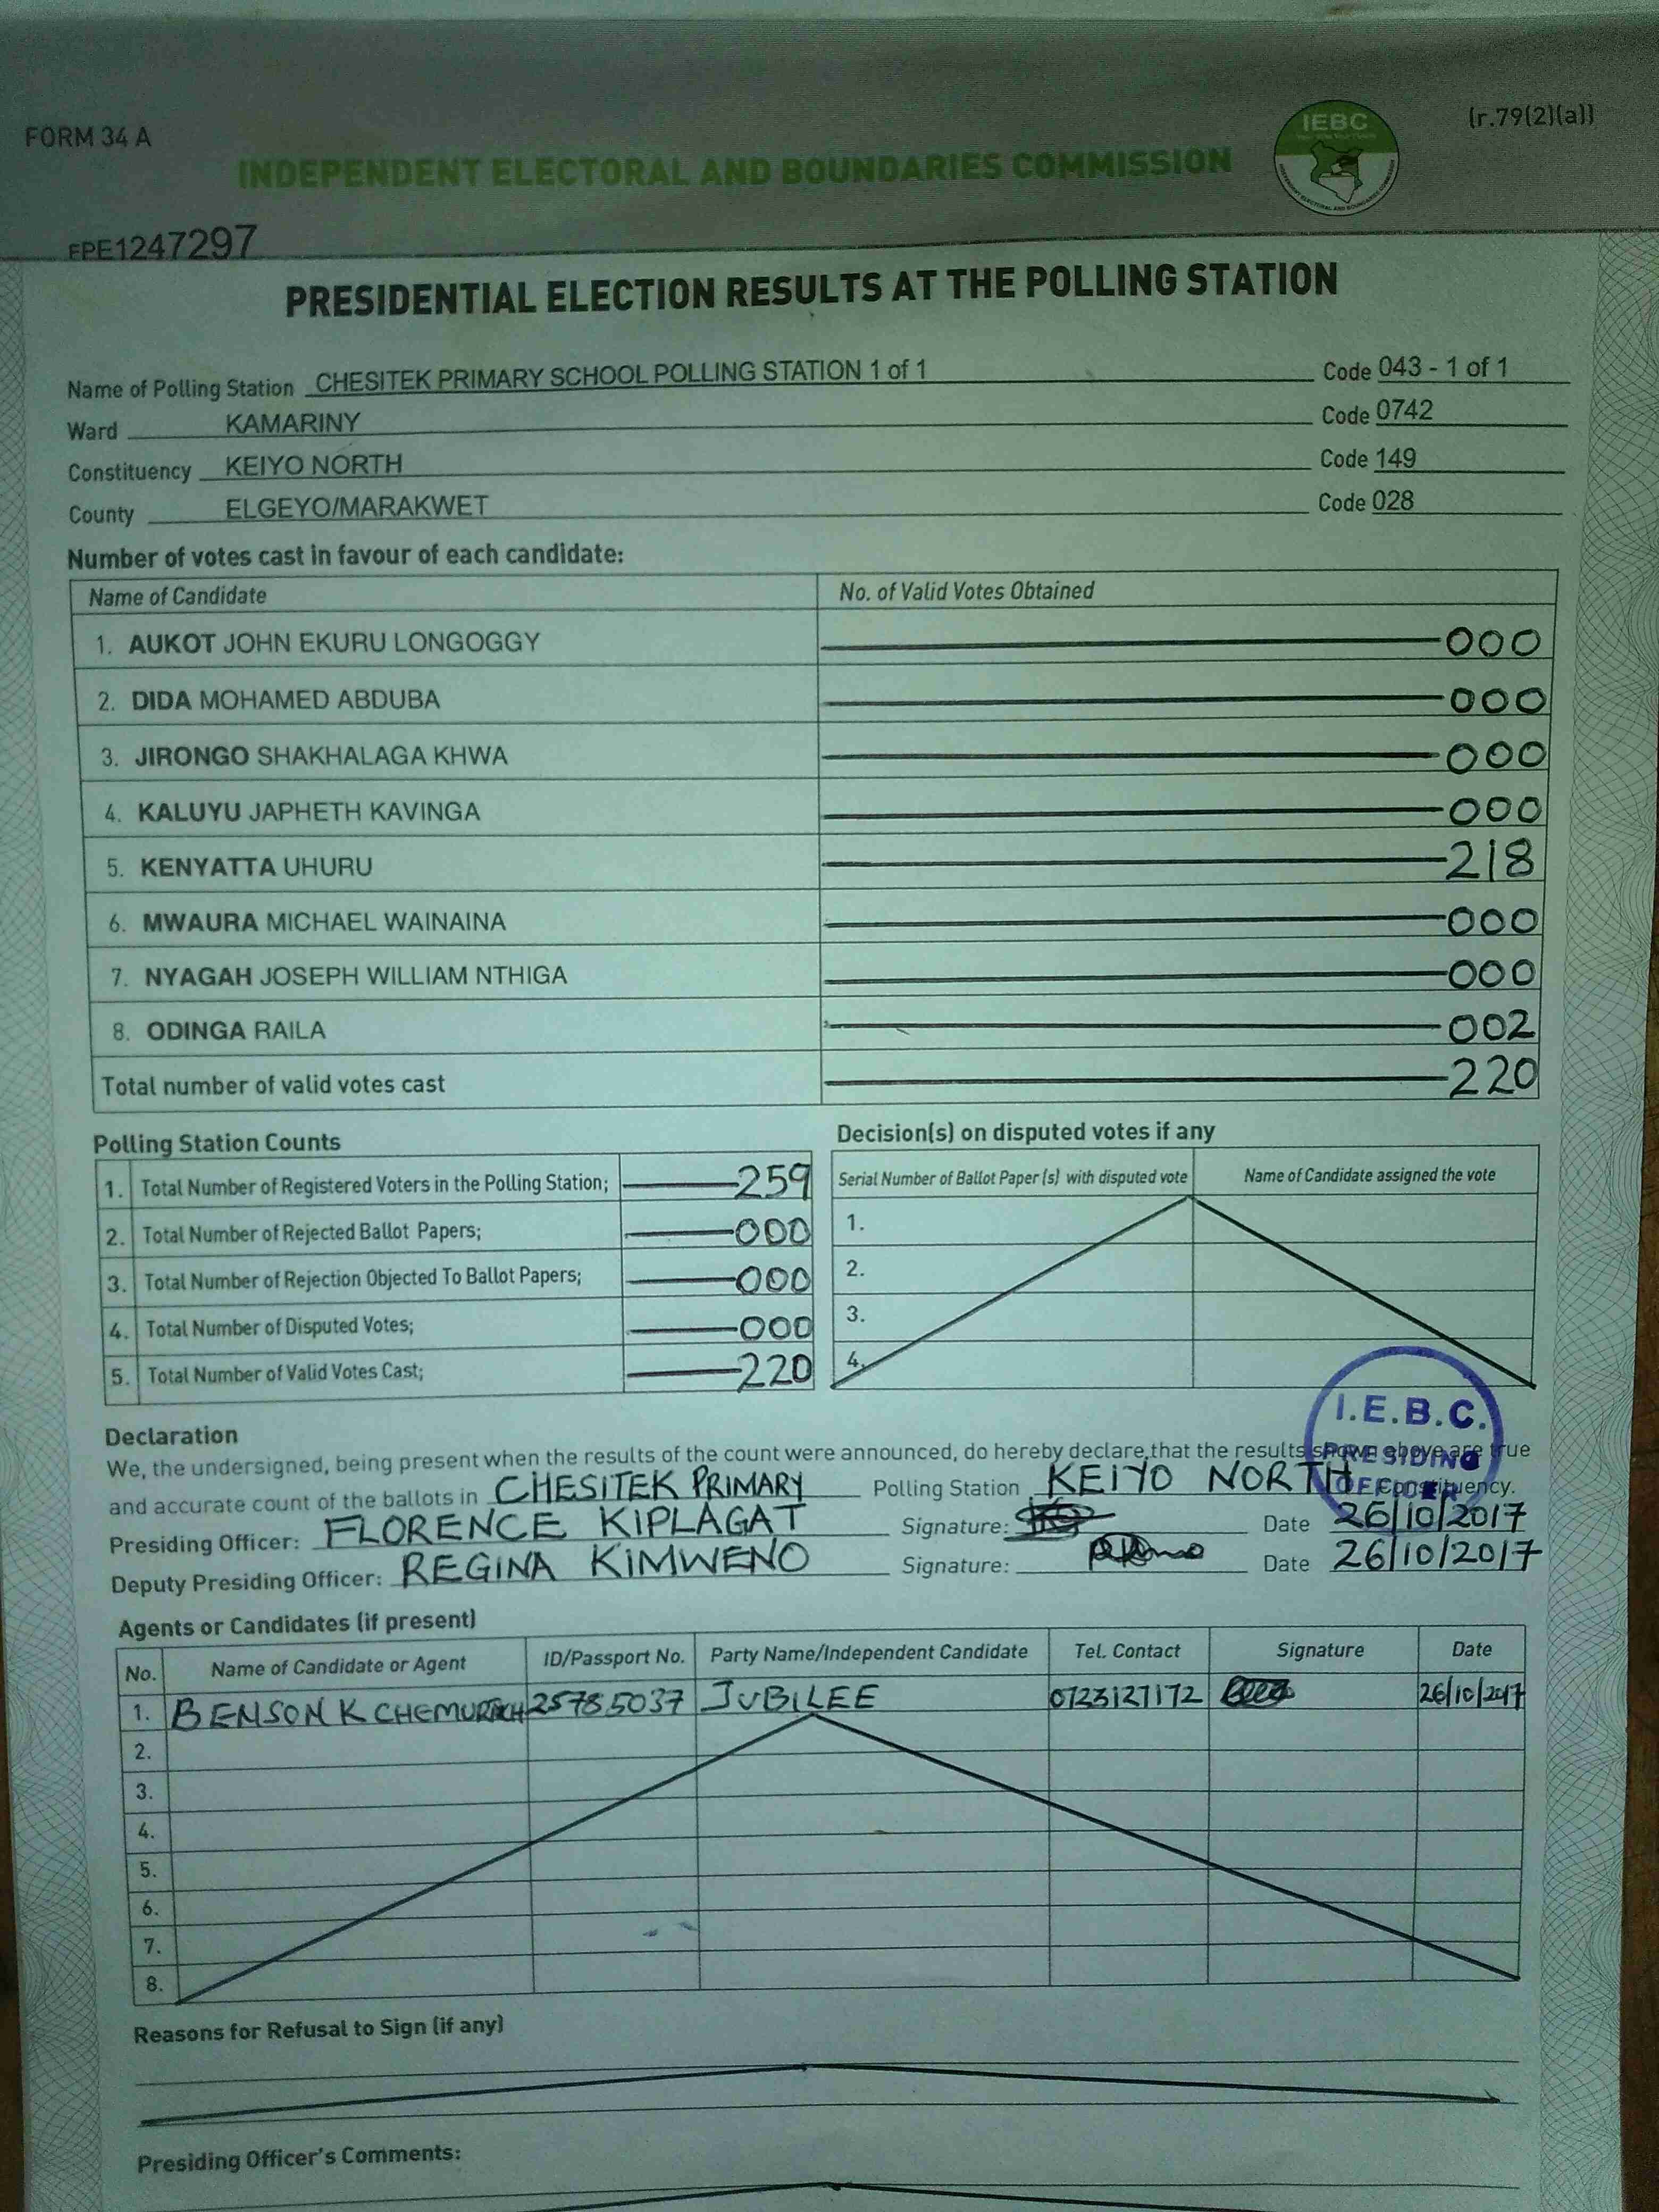 FORM 34 A
IEBC
(r.79(2)(a))
INDEPENDENT ELECTORAL AND BOUNDARIES COMMISSION
EPE1247297
PRESIDENTIAL ELECTION RESULTS AT THE POLLING STATION
Name of Polling Station CHESITEK PRIMARY SCHOOL POLLING STATION 1 of 1 Code 043 - 1 of 1
Ward KAMARINY Code 0742
Constituency KEIYO NORTH Code 149
County ELGEYO/MARAKWET Code 028
Number of votes cast in favour of each candidate:
Name of Candidate No. of Valid Votes Obtained
1. AUKOT JOHN EKURU LONGOGGY 000
2. DIDA MOHAMED ABDUBA 000
3. JIRONGO SHAKHALAGA KHWA 000
4. KALUYU JAPHETH KAVINGA 000
5. KENYATTA UHURU 218
6. MWAURA MICHAEL WAINAINA 000
7. NYAGAH JOSEPH WILLIAM NTHIGA 000
8. ODINGA RAILA 002
Total number of valid votes cast 220
Polling Station Counts
1. Total Number of Registered Voters in the Polling Station; 259
2. Total Number of Rejected Ballot Papers; 000
3. Total Number of Rejection Objected To Ballot Papers; 000
4. Total Number of Disputed Votes; 000
5. Total Number of Valid Votes Cast; 220
Decision(s) on disputed votes if any
Serial Number of Ballot Paper (s) with disputed vote Name of Candidate assigned the vote
1.
2.
3.
4.
I.E.B.C.
PRESIDING
OFFICER
Declaration
We, the undersigned, being present when the results of the count were announced, do hereby declare that the results shown above are true
and accurate count of the ballots in CHESITEK PRIMARY Polling Station KEIYO NORTH Constituency.
Presiding Officer: FLORENCE KIPLAGAT Signature: Date 26/10/2017
Deputy Presiding Officer: REGINA KIMWENO Signature: Date 26/10/2017
Agents or Candidates (if present)
No. Name of Candidate or Agent ID/Passport No. Party Name/Independent Candidate Tel. Contact Signature Date
1. BENSON K 25785037 JUBILEE 0723127172 26/10/2017
2.
3.
4.
5.
6.
7.
8.
Reasons for Refusal to Sign (if any)
Presiding Officer's Comments: